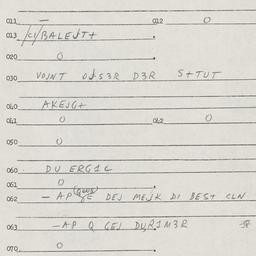 011 — 012 O
013 /c/BALEJT+
020 O
030 VOJNT OJS3R D3R S+TUT
040 AKEJG+
041 O 042 O
050 O
060 DU ERG1C
061 O
062 — AP DEJ MEJK DI BEST CLN
063 —AP Q GEJ DUR1M3R
070 O